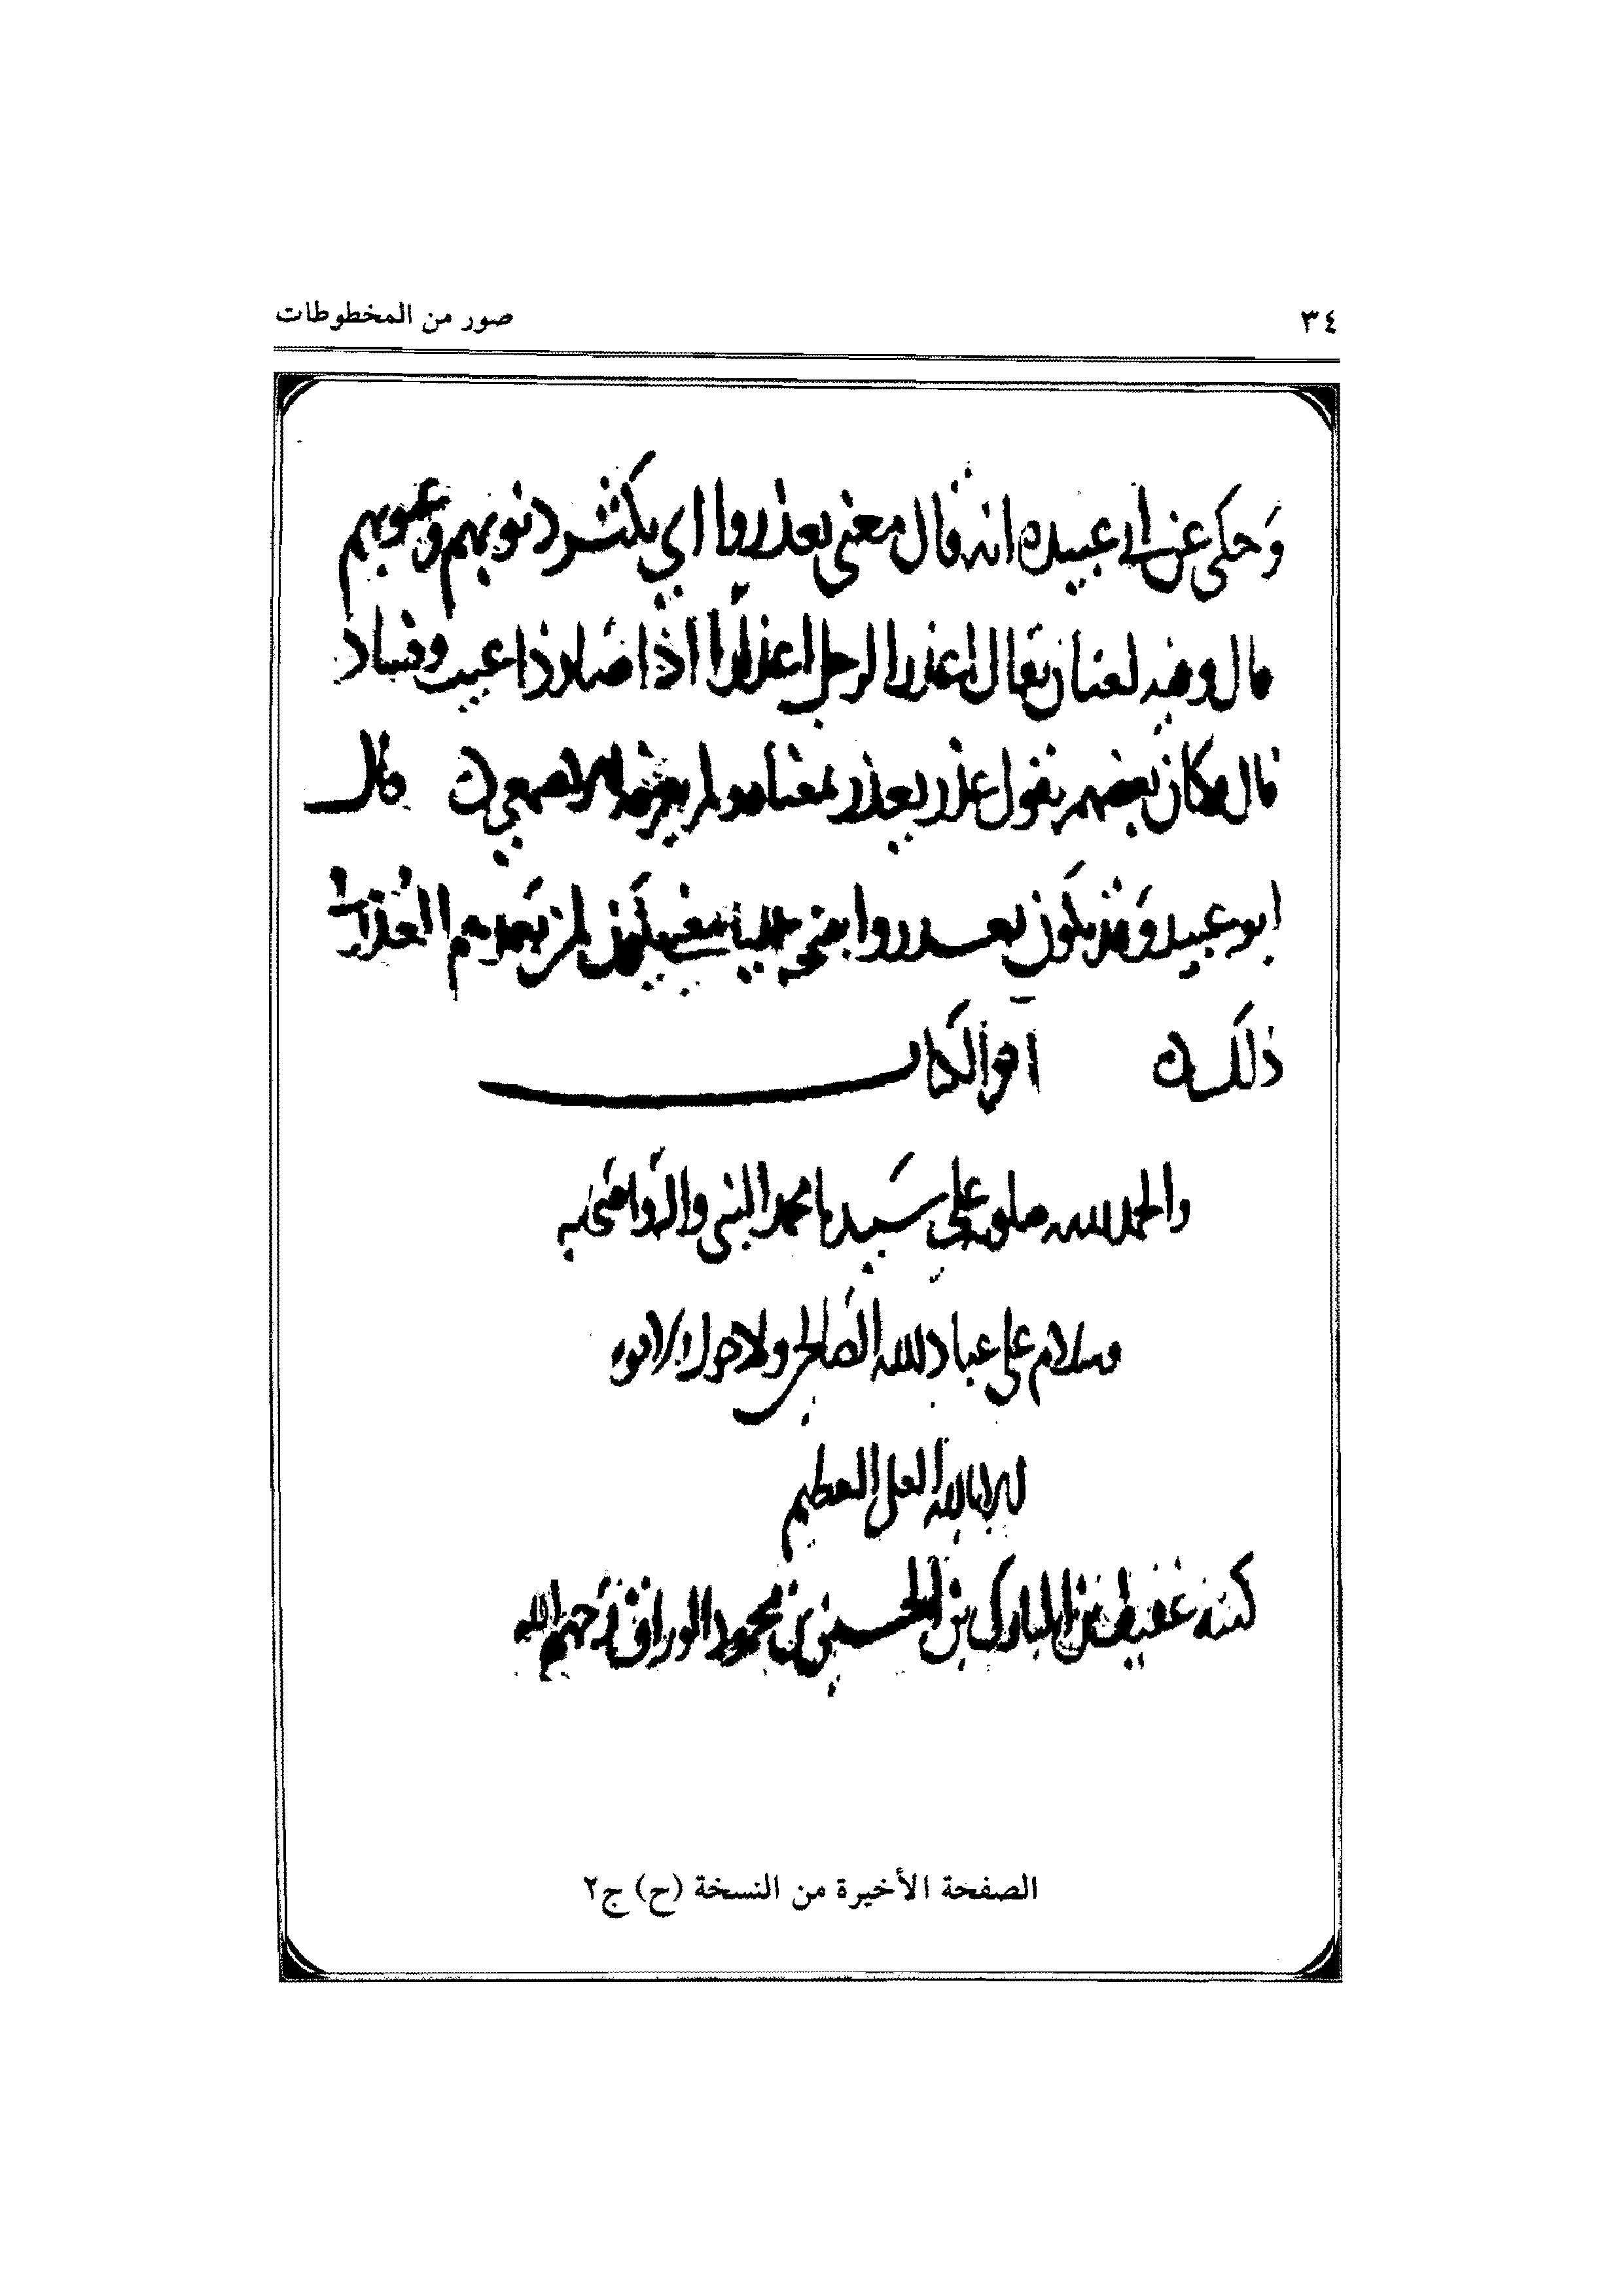 ٣٤
صور من المخطوطات
وَحكى عن ابي عبيده انه قال معنى يعذروا اي يكثر ذنوبهم وعيوبهم
قال وفيه لغتان يقال اعذر الرجل اعذارا اذا صار ذا عيب وفساد
قال وكان بعضهم يقول عذر يعذر بمعناه ولم يعرفه الاصمعي قال
ابو عبيد وقد يكون يعذروا بفتح اليا بمعنى يكون لمن يعذبهم العذر في
ذلك اخر الكتاب
والحمد لله وصلوته على سيدنا محمد النبي واله وصحبه
وسلام على عباد الله الصالحين ولا حول ولا قوه
الا بالله العلي العظيم
كتبه بن المبارك بن الحسين بن محمود الوراق رحمهم الله
الصفحة الأخيرة من النسخة (ح) ج٢